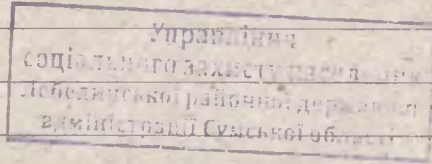 Управління
соціального захисту населення
Лебединської районної державної
адміністрації Сумської області